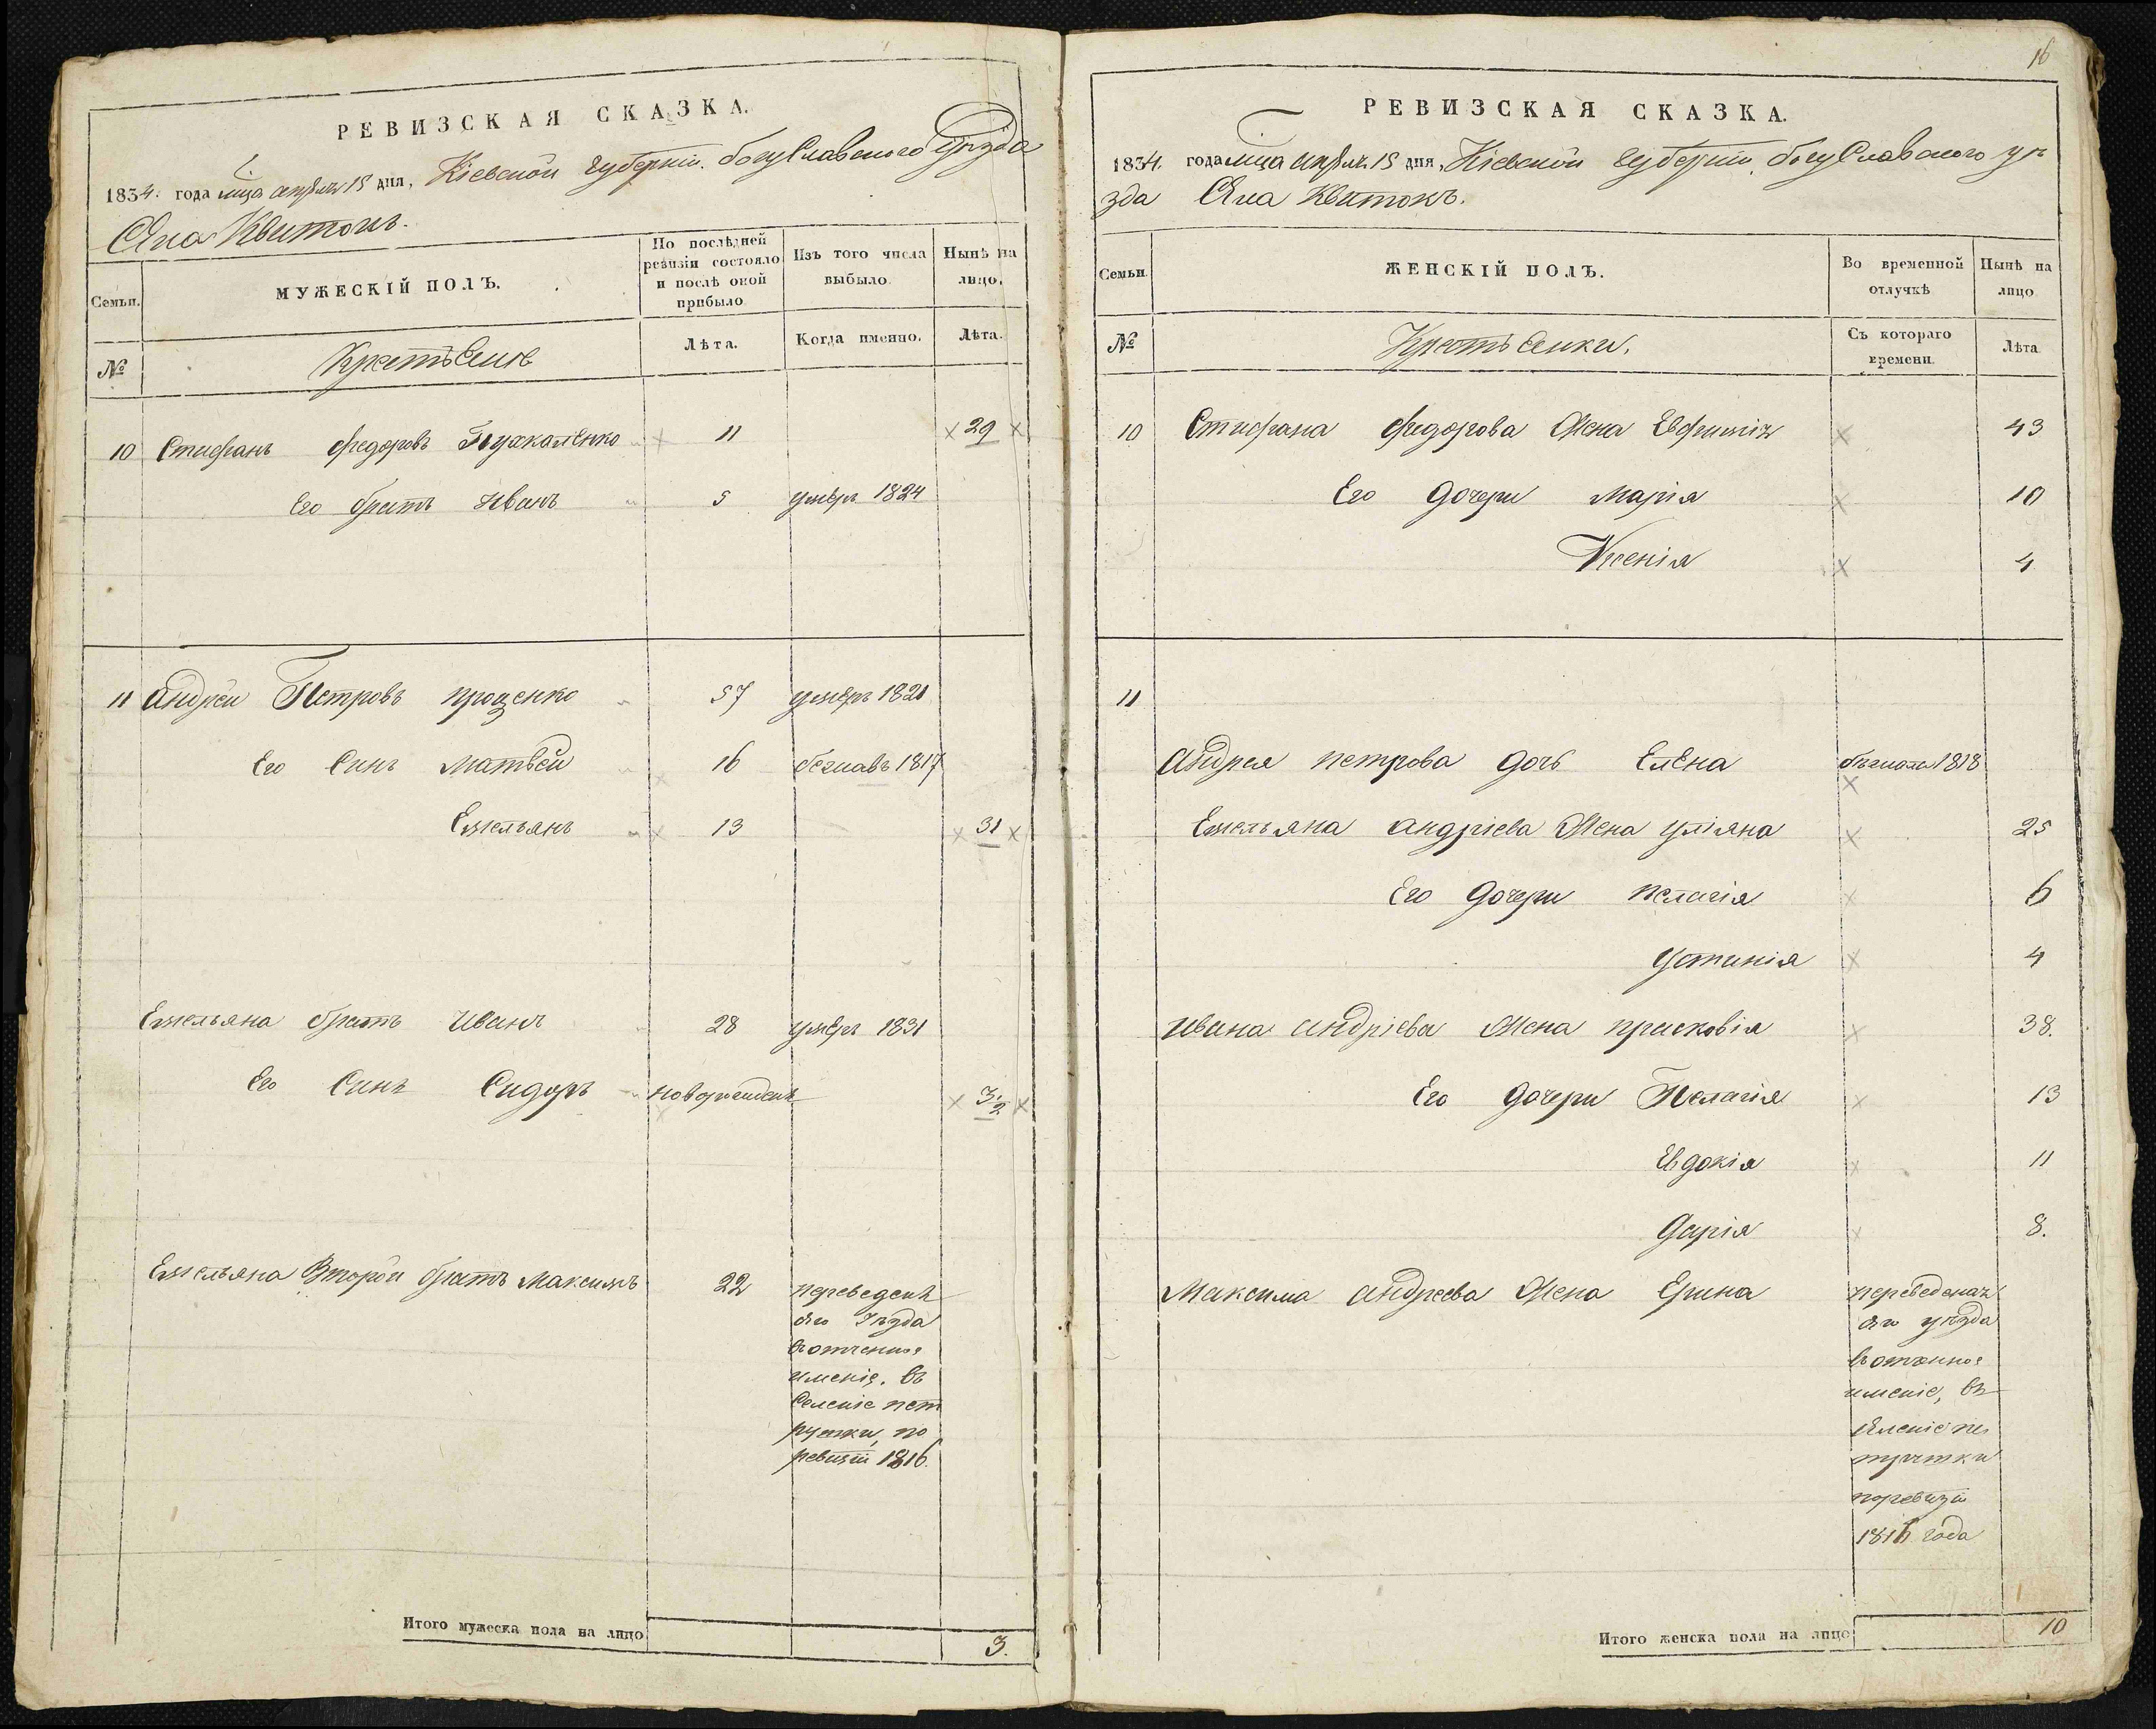 РЕВИЗСКАЯ СКАЗКА.
1834. года мца апреля 15 дня, Кіевской губерніи. богуСлавского Уезда
Села Квитокъ.
Семьи.
МУЖЕСКІЙ ПОЛЪ.
По послѣдней ревизіи состояло и послѣ оной прибыло
Изъ того числа выбыло
Нынѣ на лицо.
№
Крестьяне
Лѣта.
Когда именно.
Лѣта.
10 Стефанъ Федоровъ 11 29
Его братъ Иванъ 5 умеръ 1824
11 андрей Петровъ проценко 57 умеръ 1821
Его Синъ матвей 16 бежавъ 1817
Емельянъ 13 31
Емельяна братъ иванъ 28 умеръ 1831
Его Синъ Сидоръ новорожденъ 3½
Емельяна Второй братъ максимъ 22 переведенъ
Уезда
вотчиное
именіе. въ
Селеніе пет
рушки, по
ревизіи 1816.
Итого мужеска пола на лицо 3.
16
РЕВИЗСКАЯ СКАЗКА.
1834. года мца апреля 15 дня, Кіевской губерніи, богуСлавского уе
зда Села Квитокъ.
Семьи.
ЖЕНСКІЙ ПОЛЪ.
Во временной отлучкѣ
Нынѣ на лицо
№
Крестьянки.
Съ котораго времени.
Лѣта
10 Стефана федорова Жена Евфимія 43
Его дочери Марія 10
Ксенія 4
11
Андрея петрова дочь Елена бежала 1818
Емельяна андріева Жена уліяна 25
Его дочери пелагія 6
устинія 4
ивана андріева Жена прасковія 38.
Его дочери Пелагія 13
Евдокія 11
дарія 8.
Максима андреева Жена Ерина переведена
уезда
вотчиное
именіе, въ
Селеніе пе
трушки
поревизіи
1816 года
Итого женска пола на лицо 10